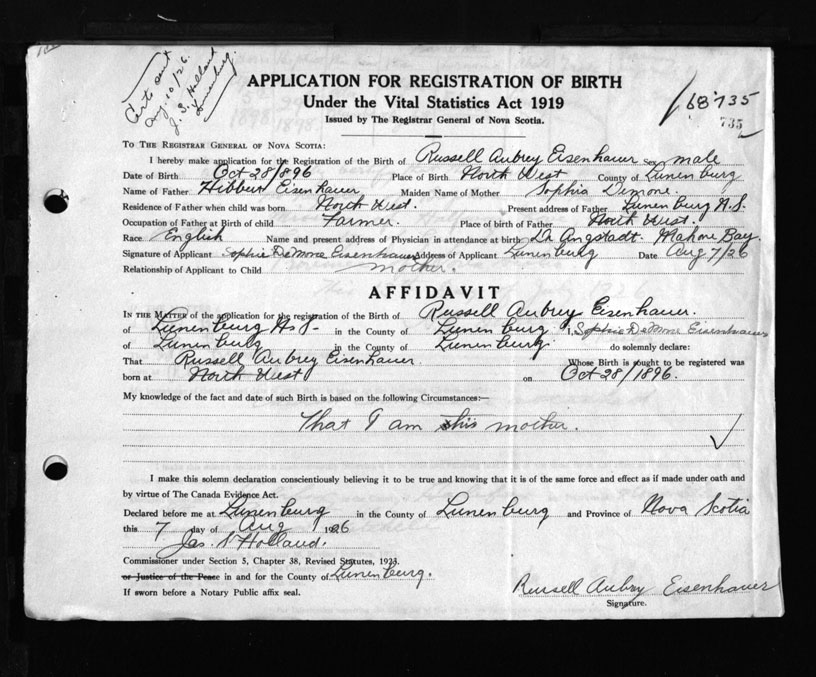 Cert sent
Aug. 10/26.
J. S. Holland
Lunenburg.
APPLICATION FOR REGISTRATION OF BIRTH
Under the Vital Statistics Act 1919
Issued by The Registrar General of Nova Scotia.
168735
735
TO THE REGISTRAR GENERAL OF NOVA SCOTIA:
I hereby make application for the Registration of the Birth of Russell Aubrey Eisenhauer Sex male
Date of Birth Oct 28/1896 Place of Birth North West County of Lunenburg
Name of Father Hibbert Eisenhauer Maiden Name of Mother Sophia Demone.
Residence of Father when child was born North West. Present address of Father Lunenburg N.S.
Occupation of Father at Birth of child Farmer. Place of birth of Father North West.
Race English Name and present address of Physician in attendance at birth Dr Angstadt. Mahone Bay.
Signature of Applicant Sophie DeMone Eisenhauer Address of Applicant Lunenburg Date Aug 7/26
Relationship of Applicant to Child mother.
AFFIDAVIT
IN THE MATTER of the application for the registration of the Birth of Russell Aubrey Eisenhauer.
of Lunenburg N.S. in the County of Lunenburg I, Sophie DeMone Eisenhauer
of Lunenburg in the County of Lunenburg. do solemnly declare:
That Russell Aubrey Eisenhauer. Whose Birth is sought to be registered was
born at North West on Oct 28/1896.
My knowledge of the fact and date of such Birth is based on the following Circumstances:—
That I am his mother.
I make this solemn declaration conscientiously believing it to be true and knowing that it is of the same force and effect as if made under oath and
by virtue of The Canada Evidence Act.
Declared before me at Lunenburg in the County of Lunenburg and Province of Nova Scotia
this 7 day of Aug 1926
Jas. S. Holland.
Commissioner under Section 5, Chapter 38, Revised Statutes, 1923.
or Justice of the Peace in and for the County of Lunenburg.
If sworn before a Notary Public affix seal.
Russell Aubry Eisenhauer
Signature.